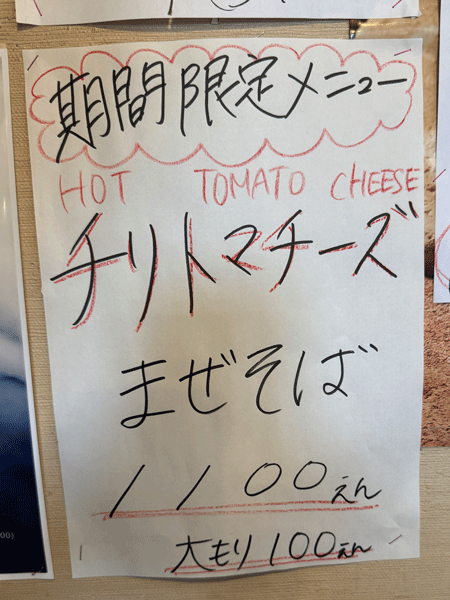 期間限定メニュー
HOT TOMATO CHEESE
チリトマチーズ
まぜそば
1100えん
大もり100えん
00)